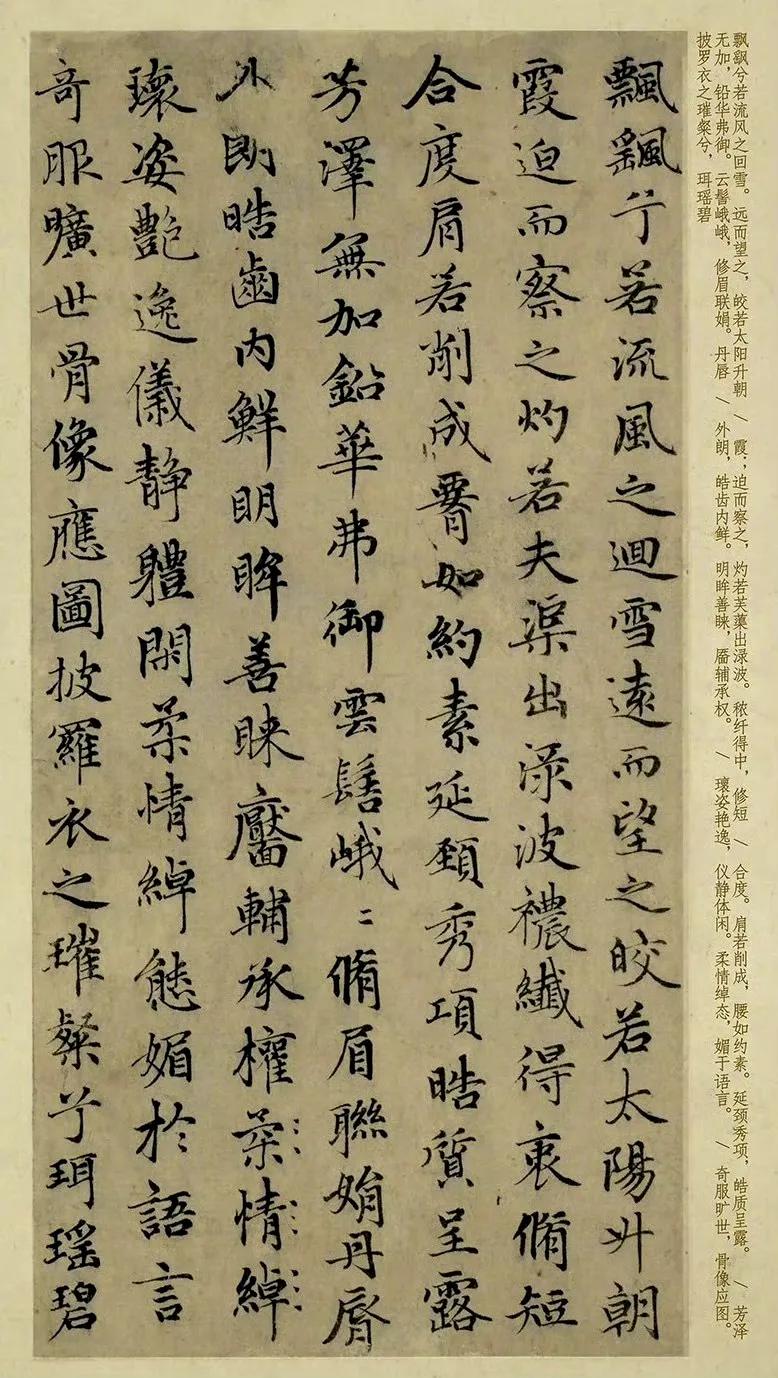 飘飖兮若流风之回雪。远而望之，皎若太阳升朝 / 霞；迫而察之，灼若芙蕖出渌波。秾纤得中，修短 / 合度。肩若削成，腰如约素。延颈秀项，皓质呈露。 / 芳泽
无加，铅华弗御。云髻峨峨，修眉联娟。丹唇 / 外朗，皓齿内鲜。明眸善睐，靥辅承权。 / 瓌姿艳逸，仪静体闲。柔情绰态，媚于语言。 / 奇服旷世，骨像应图。
披罗衣之璀粲兮，珥瑶碧
飄飖兮若流風之迴雪遠而望之皎若太陽升朝
霞迫而察之灼若夫渠出渌波襛纖得衷脩短
合度肩若削成腰如約素延頸秀項晧質呈露
芳澤無加鉛華弗御雲髻峨〻脩眉聯娟丹脣
外朗晧齒内鮮明眸善睞靨輔承權柔情綽
瓌姿艷逸儀静體閑柔情綽態媚於語言
奇服曠世骨像應圖披羅衣之璀粲兮珥瑶碧